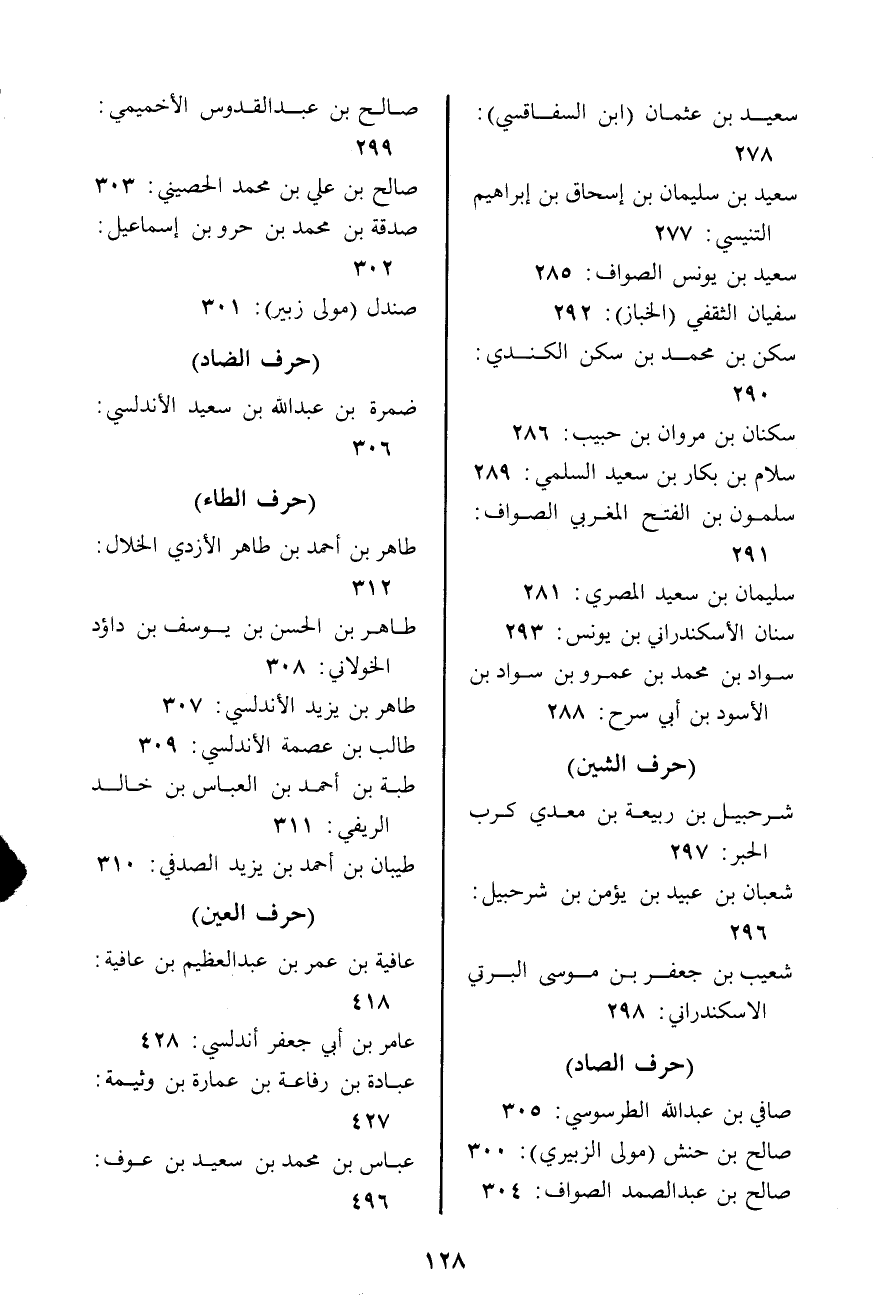 سعيد بن عثمان (ابن السفاقسي):
٢٧٨
سعيد بن سليمان بن إسحاق بن إبراهيم
التنيسي: ٢٧٧
سعيد بن يونس الصواف: ٢٨٥
سفيان الثقفي (الخباز): ٢٩٢
سكن بن محمد بن سكن الكندي:
٢٩٠
سكنان بن مروان بن حبيب: ٢٨٦
سلام بن بكار بن سعيد السلمي: ٢٨٩
سلمون بن الفتح المغربي الصواف:
٢٩١
سليمان بن سعيد المصري: ٢٨١
سنان الأسكندراني بن يونس: ٢٩٣
سواد بن محمد بن عمرو بن سواد بن
الأسود بن أبي سرح: ٢٨٨
(حرف الشين)
شرحبيل بن ربيعة بن معدي كرب
الحبر: ٢٩٧
شعبان بن عبيد بن يؤمن بن شرحبيل:
٢٩٦
شعيب بن جعفر بن موسى البرتي
الاسكندراني: ٢٩٨
(حرف الصاد)
صافي بن عبدالله الطرسوسي: ٣٠٥
صالح بن حنش (مولى الزبيري): ٣٠٠
صالح بن عبدالصمد الصواف: ٣٠٤
صالح بن عبدالقدوس الأخميمي:
٢٩٩
صالح بن علي بن محمد الحصيني: ٣٠٣
صدقة بن محمد بن حرو بن إسماعيل:
٣٠٢
صندل (مولى زبير): ٣٠١
(حرف الضاد)
ضمرة بن عبدالله بن سعيد الأندلسي:
٣٠٦
(حرف الطاء)
طاهر بن أحمد بن طاهر الأزدي الخلال:
٣١٢
طاهر بن الحسن بن يوسف بن داؤد
الخولاني: ٣٠٨
طاهر بن يزيد الأندلسي: ٣٠٧
طالب بن عصمة الأندلسي: ٣٠٩
طبة بن أحمد بن العباس بن خالد
الريفي: ٣١١
طيبان بن أحمد بن يزيد الصدفي: ٣١٠
(حرف العين)
عافية بن عمر بن عبدالعظيم بن عافية:
٤١٨
عامر بن أبي جعفر أندلسي: ٤٢٨
عبادة بن رفاعة بن عمارة بن وثيمة:
٤٢٧
عباس بن محمد بن سعيد بن عوف:
٤٩٦
١٢٨